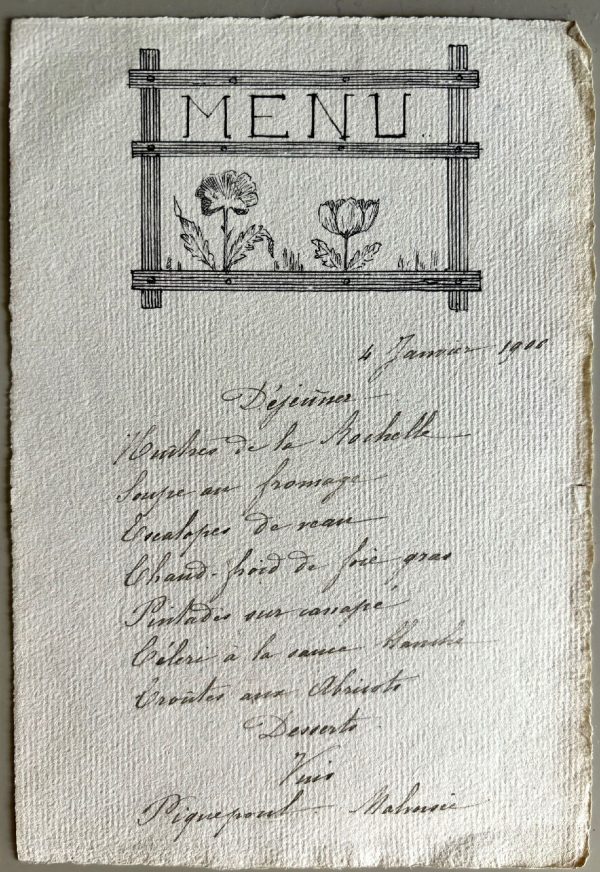 MENU
4 Janvier 1900
Déjeûner
Huîtres de la Rochelle
Soupe au fromage
Escalopes de veau
Chaud-froid de foie gras
Pintades sur canapé
Céleri à la sauce blanche
Croûtes aux Abricots
Desserts
Vins
Piquepoul Malvoisie